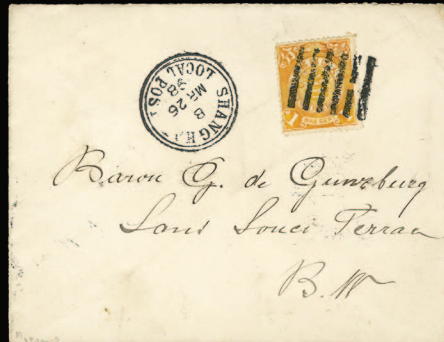 SHANGHAI LOCAL POST
B
MR 26
98
1
Baron G. de Gunzburg
Sans Souci Terrace
B. W